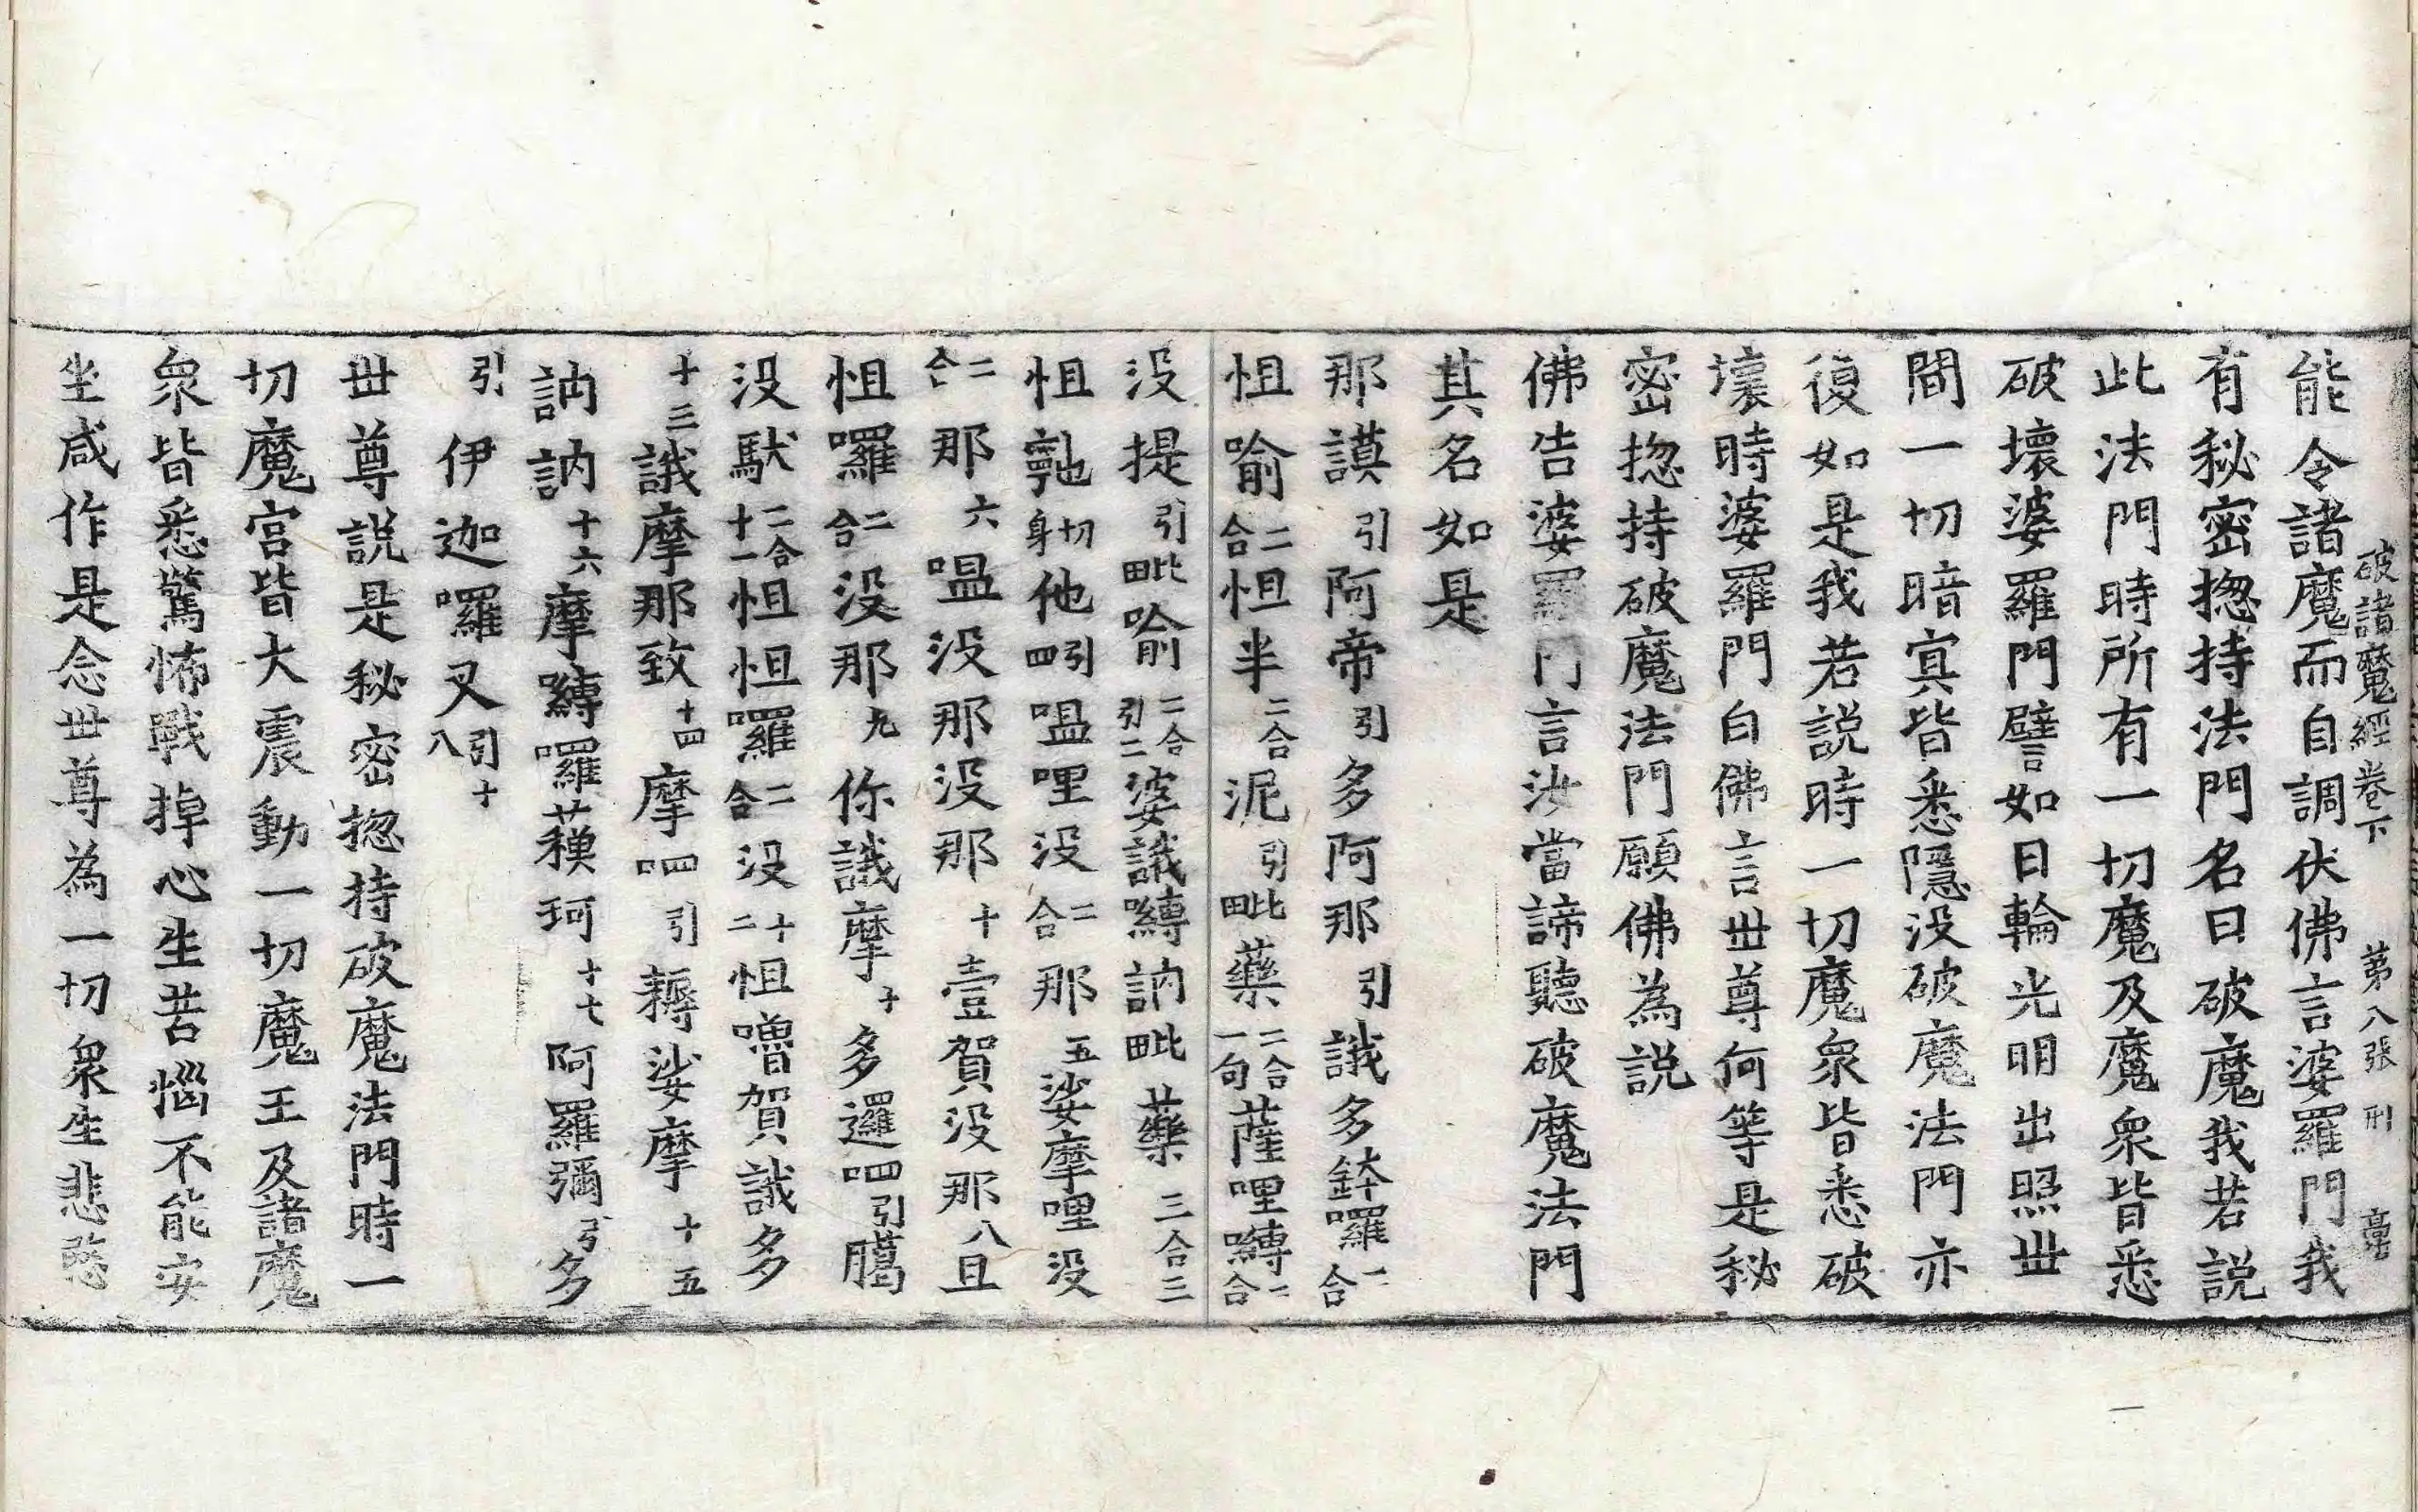 破諸魔經卷下 第八張 刑
能令諸魔而自調伏佛言婆羅門我
有秘密揔持法門名曰破魔我若説
此法門時所有一切魔及魔衆皆悉
破壞婆羅門譬如日輪光明出照丗
間一切暗㝠皆悉隱没破魔法門亦
復如是我若説時一切魔衆皆悉破
壞時婆羅門白佛言丗尊何等是秘
密揔持破魔法門願佛為説
佛告婆羅門言汝當諦聽破魔法門
其名如是
那謨引阿帝引多阿那引誐多鉢囉二合
怛喻二合怛半二合泥引毗藥二合一句薩哩嚩二合
没提引毗喻二合引二婆誐嚩訥毗藥三合三
怛㲉切身他引四嗢哩没二合那五娑摩哩没
二合那六嗢没那没那十壹賀没那八且
怛囉二合没那九你誐摩十多邏呬引臈
没馱二合十一怛怛囉二合没十二怛嚕賀誐多
十三誐摩那致十四摩呬引耨娑摩十五
訥訥十六摩嚩囉蘕珂十七阿羅彌引多
引伊迦囉叉引十八
丗尊説是秘密揔持破魔法門時一
切魔宮皆大震動一切魔王及諸魔
衆皆悉驚怖戰掉心生苦惱不能安
坐咸作是念丗尊為一切衆生悲愍